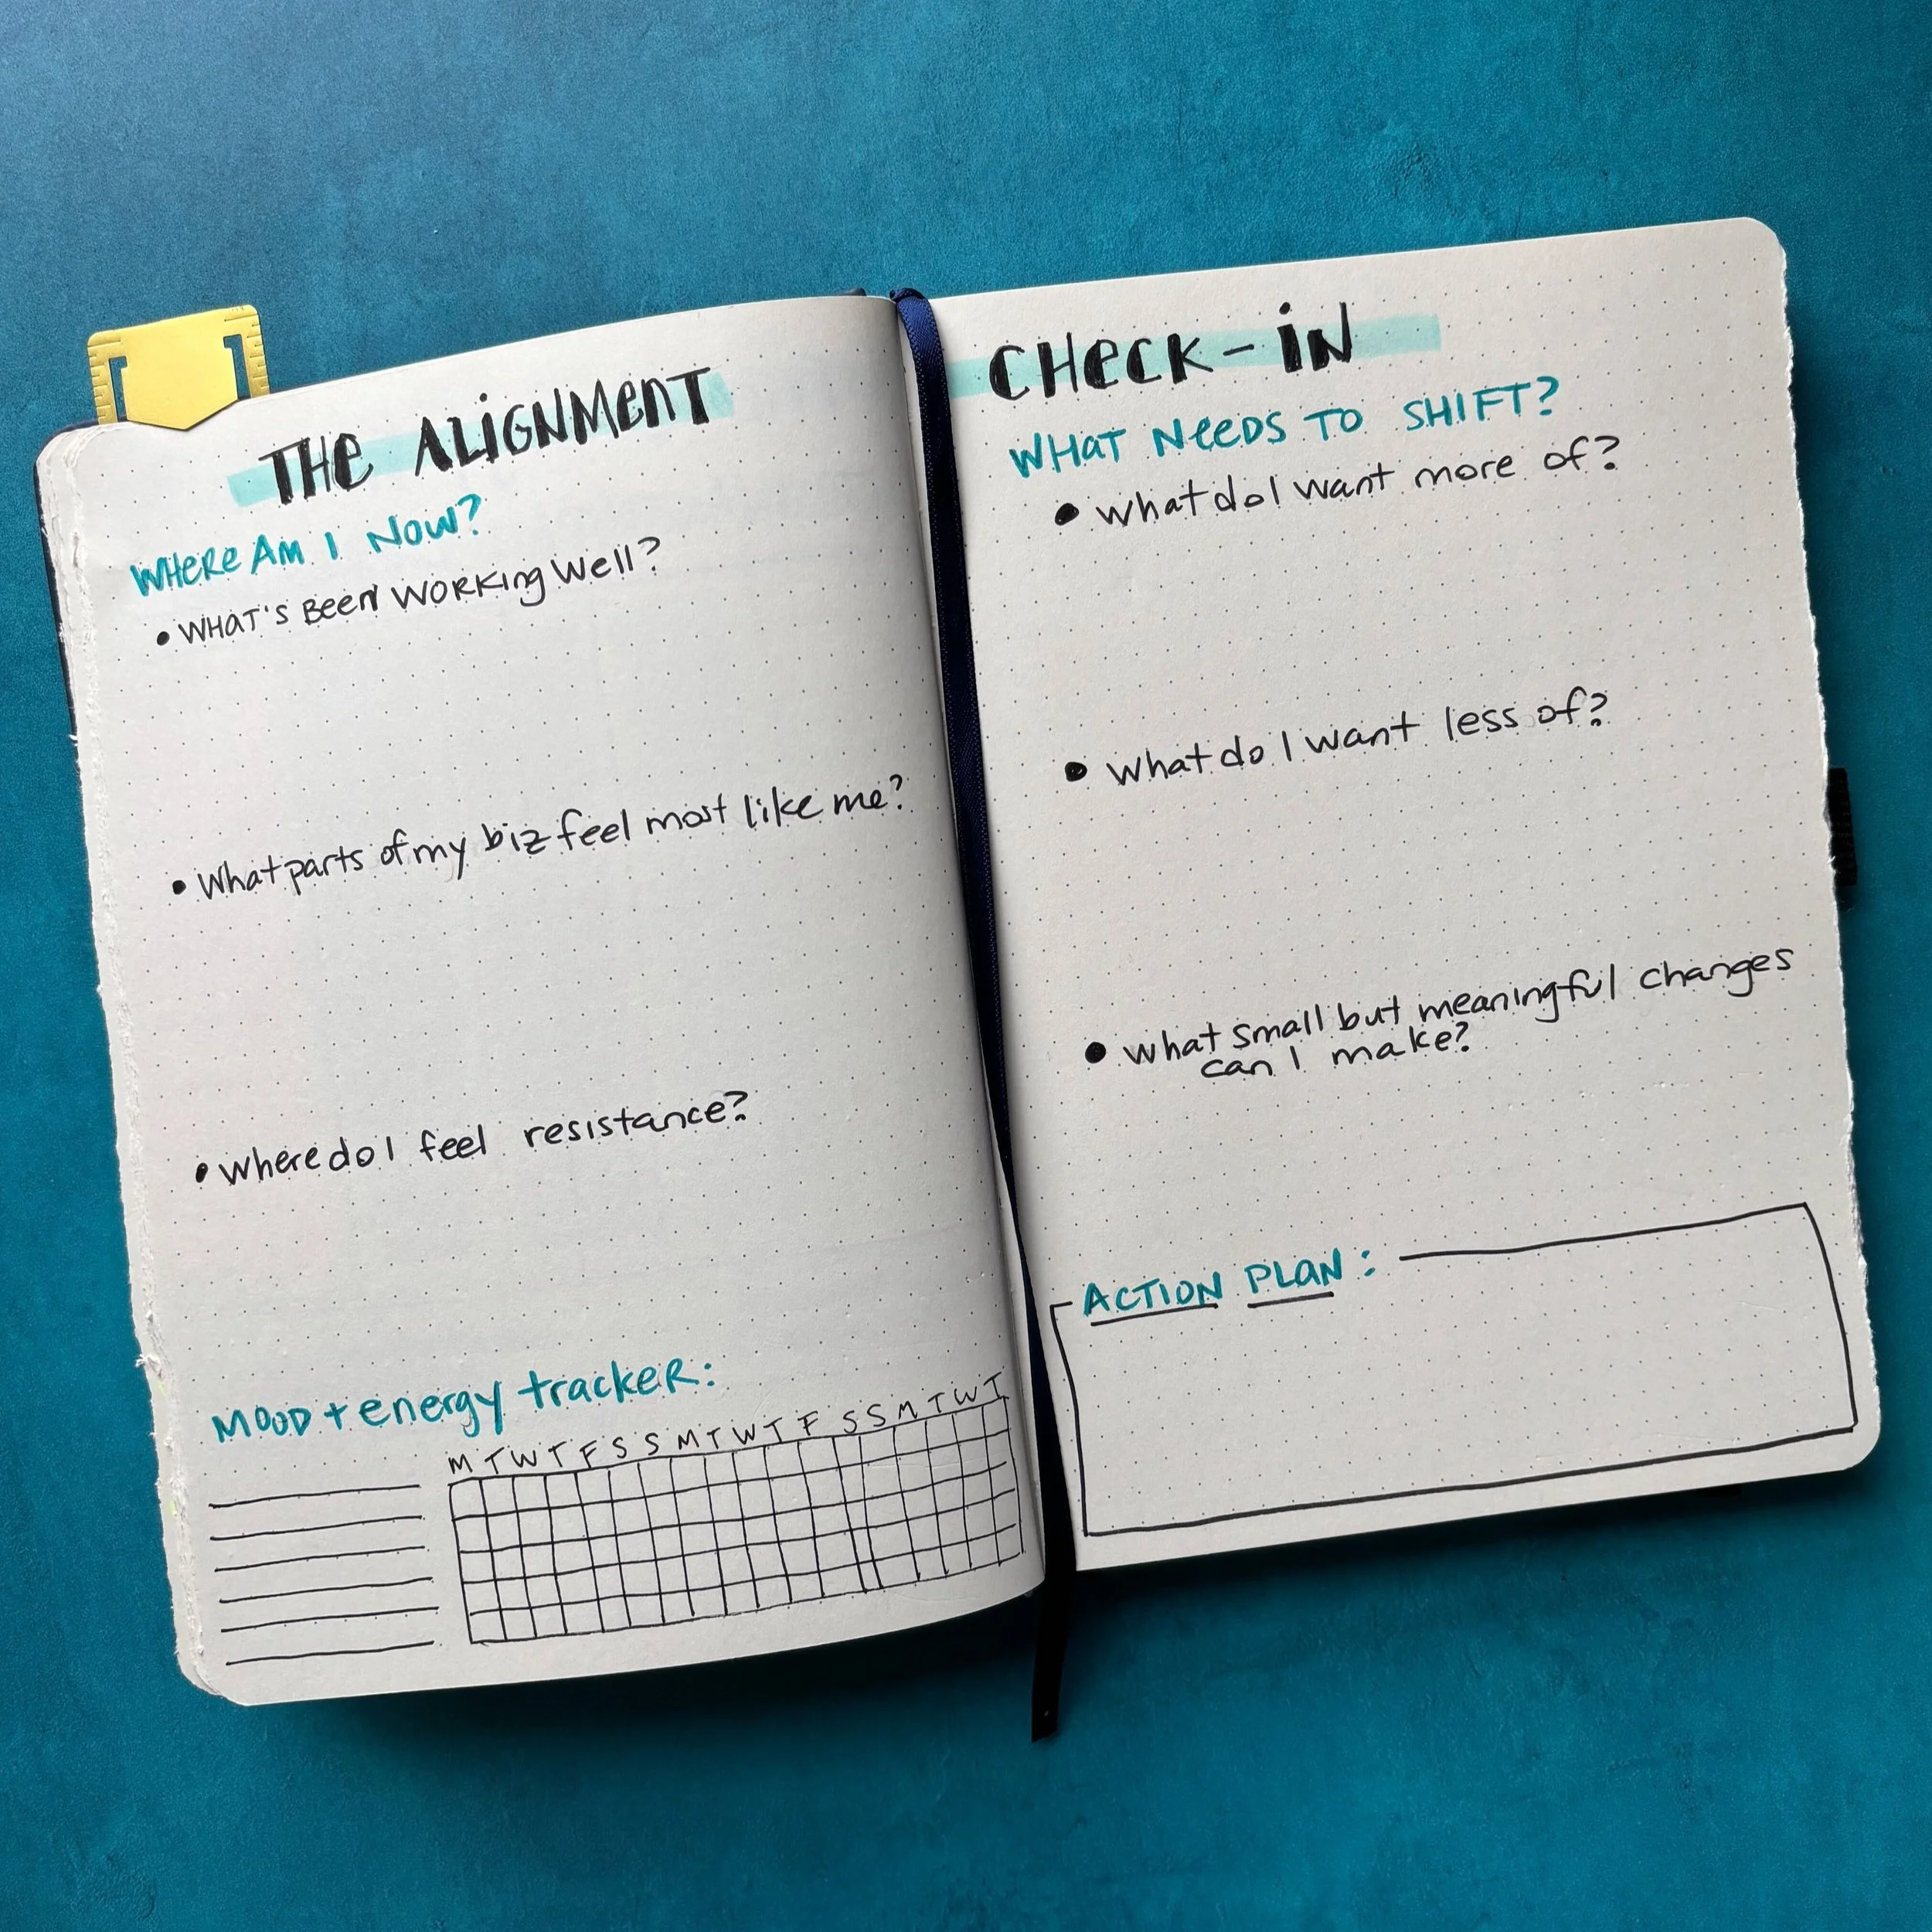 THE ALIGNMENT
WHERE AM I NOW?
• WHAT'S BEEN WORKING WELL?
• What parts of my biz feel most like me?
• Where do I feel resistance?
MOOD + energy tracker:
M T W T F S S M T W T F S S M T W T
CHECK-IN
WHAT NEEDS TO SHIFT?
• What do I want more of?
• What do I want less of?
• What small but meaningful changes
can I make?
ACTION PLAN: